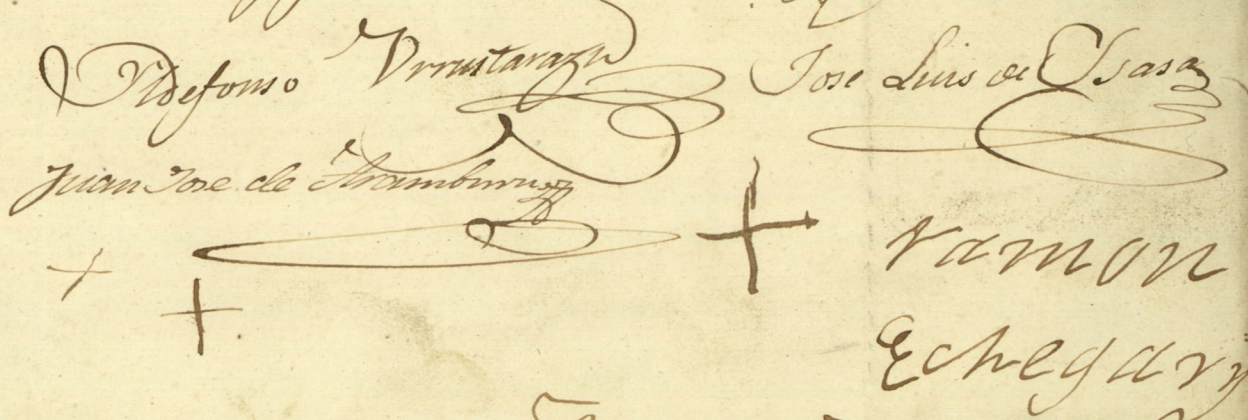 Yldefonso Vrrustarazu
Jose Luis de Ysasa
Juan Jose de Aramburu
+
ramon
+
+
Echegary